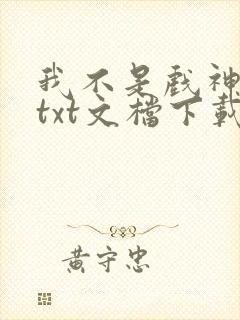 我不是戲神
txt文檔下載
黃守忠